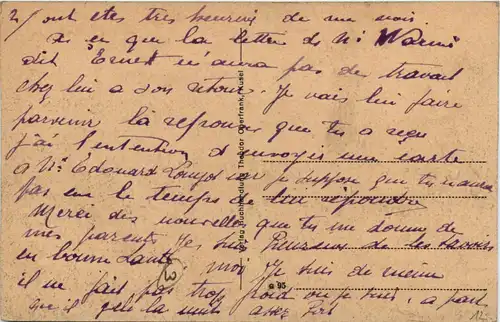 2/ ont étés très heureux de me voir.
en que la lettre de Mr
dit Ernest n'aura pas de travail
chez lui a son retour. Je vais lui faire
parvenir la réponse que tu a reçu
j'ai l'intention d'envoyer une carte
a Mr Edouard je suppose que tu n'aura
pas eu le temps de lui répondre
Merci des nouvelles que tu me donne de
mes parents Je suis heureux de les savoir
en bonne santé, moi Je suis de même
il ne fait pas trop froid ou je suis, a part
que il gèle la nuit assez fort
Verlag Buchhandlung Theodor Oberfrank, Kusel
e 95